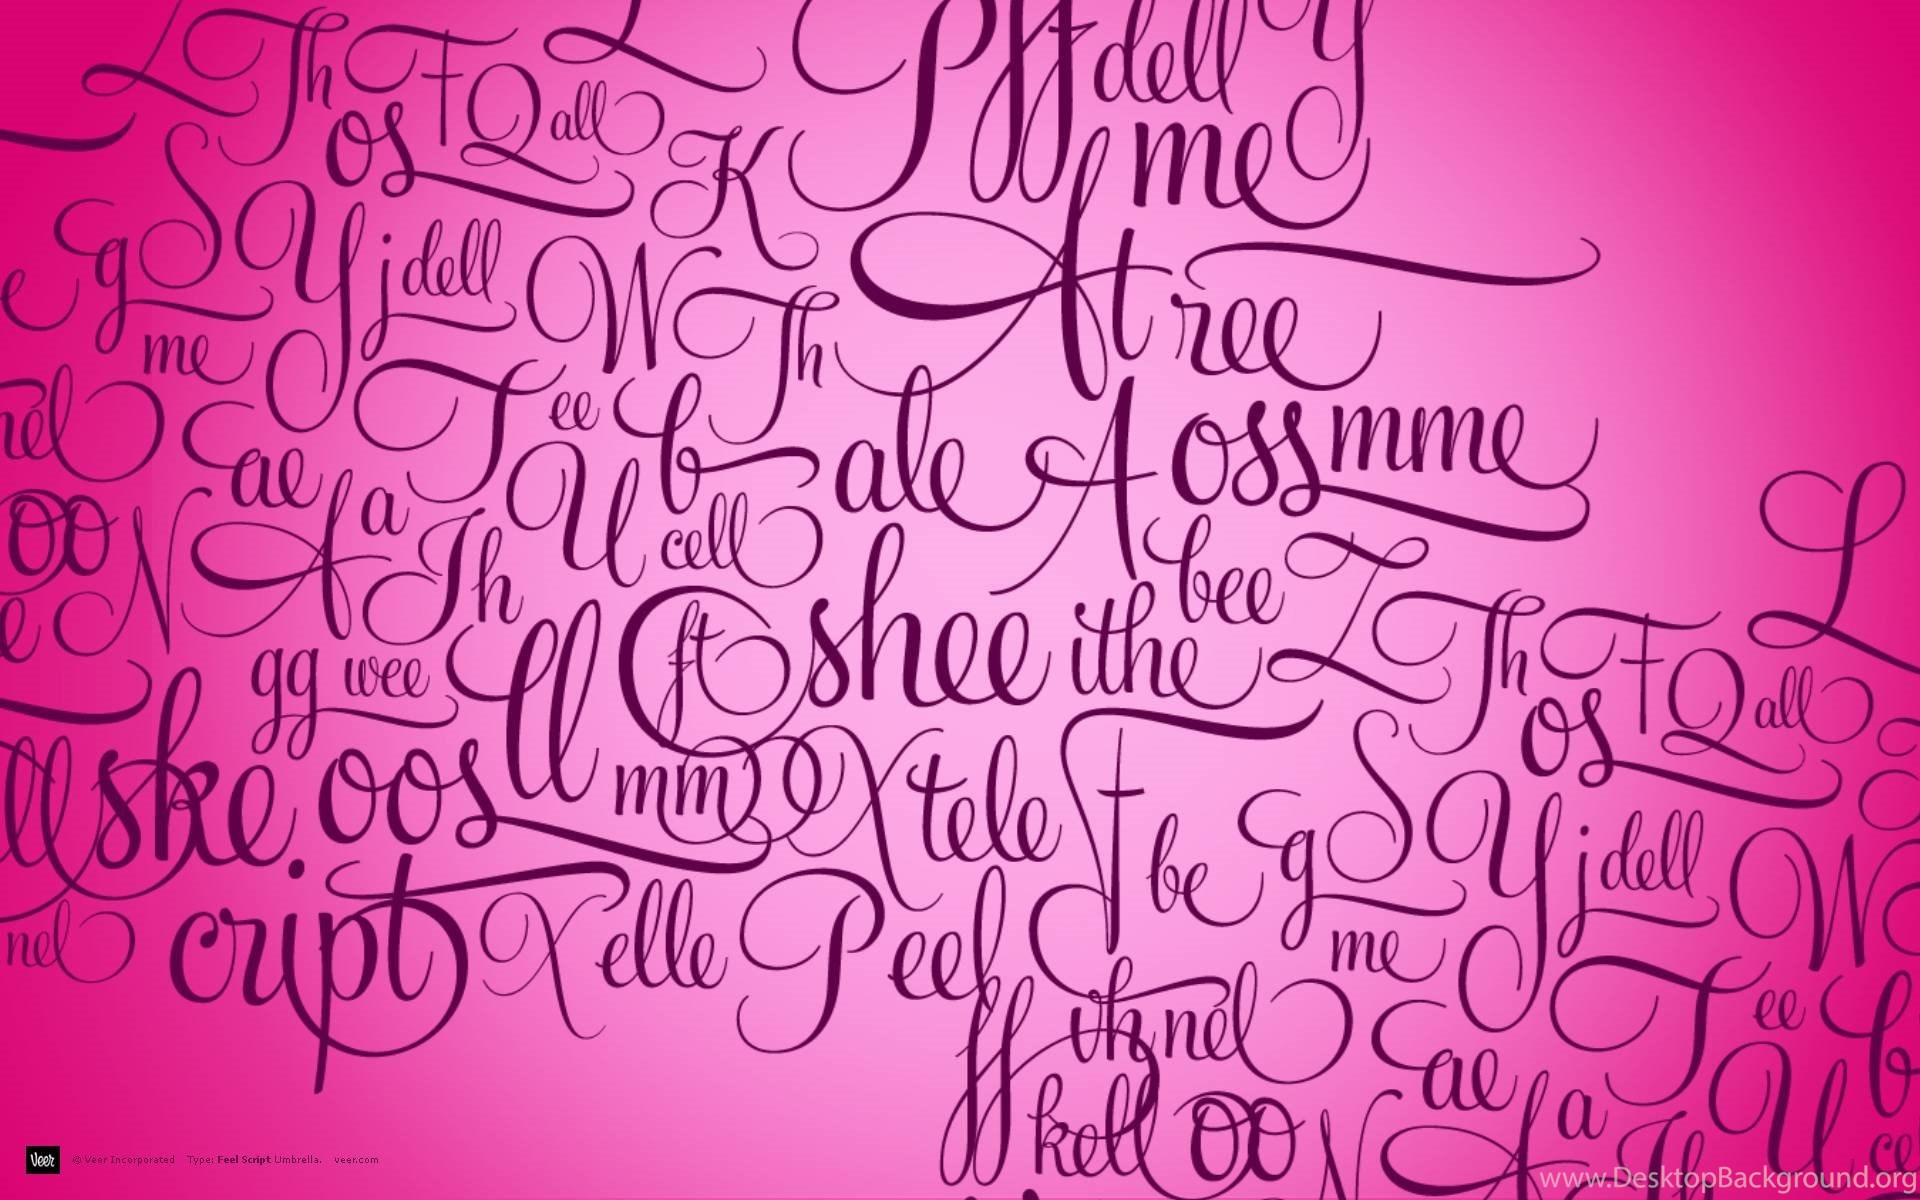 L Th F Q all L Pff dell Y
os K me
e g S Y j dell W Th At ree
me
nel ae T ee b ale A oss mme
oo N A a Th U cell bee L
e gg wee ll ft shee ithe L Th F Q all
os
ll ske oos mm X tele F be g S Y j dell W
nel cript X elle P eel me
ff th nel ae T ee b
kell oo A a Th U ce
Veer © Veer Incorporated Type: Feel Script Umbrella. veer.com
www.DesktopBackground.org